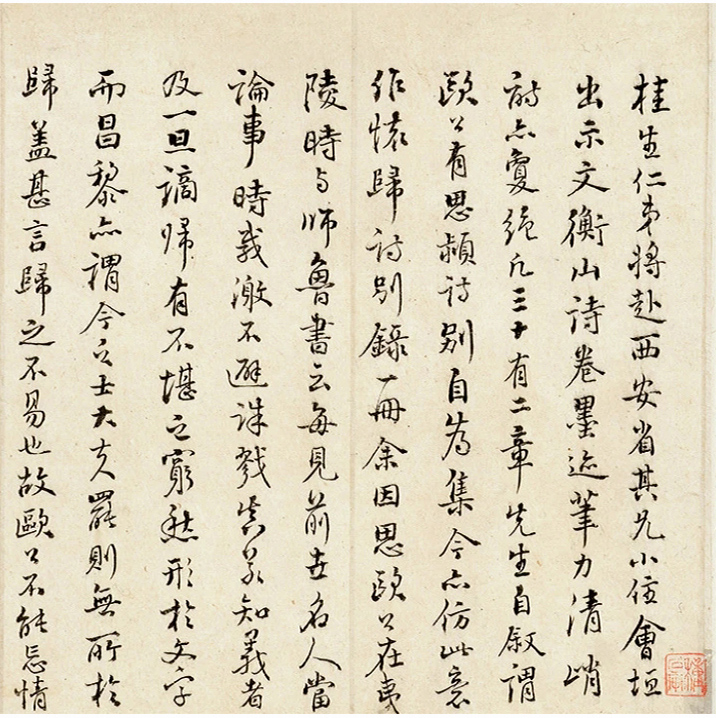 桂生仁弟將赴西安省其兄小住會垣
出示文衡山詩卷墨迹筆力清峭
詩亦夐絕凡三十有二章先生自敘謂
歐公有思潁詩別自為集今亦仿此意
作懷歸詩別錄一冊余因思歐公在夷
陵時與師魯書云每見前世名人當
論事時感激不避誅戮真若知義者
及一旦謫歸有不堪之窮愁形於文字
而昌黎亦謂今之士大夫罷則無所於
歸蓋甚言歸之不易也故歐公不能忘情